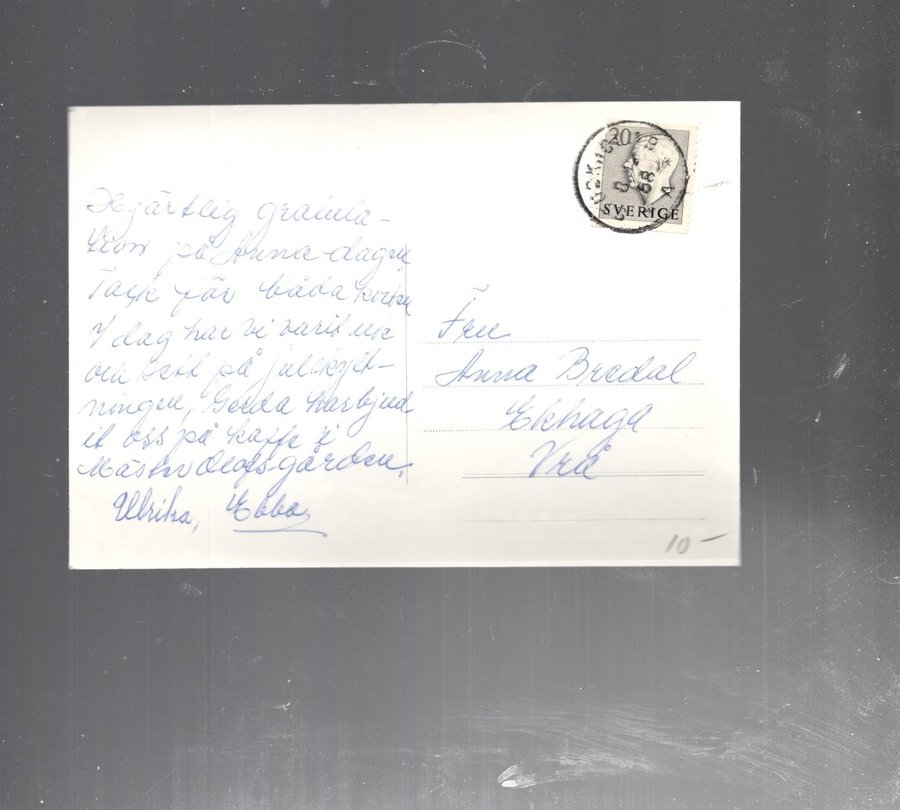 Hjärtlig gratula-
tion på Anna-dagen
Tack för båda korten
I dag har vi varit ute
och sett på julskylt-
ningen, Gerda har bjud
it oss på kaffe i
Mäster Olofsgården.
Ulrika, Ebba
20
SVERIGE
58
A
Fru
Anna Bredal
Ekhaga
Vrå
10 –